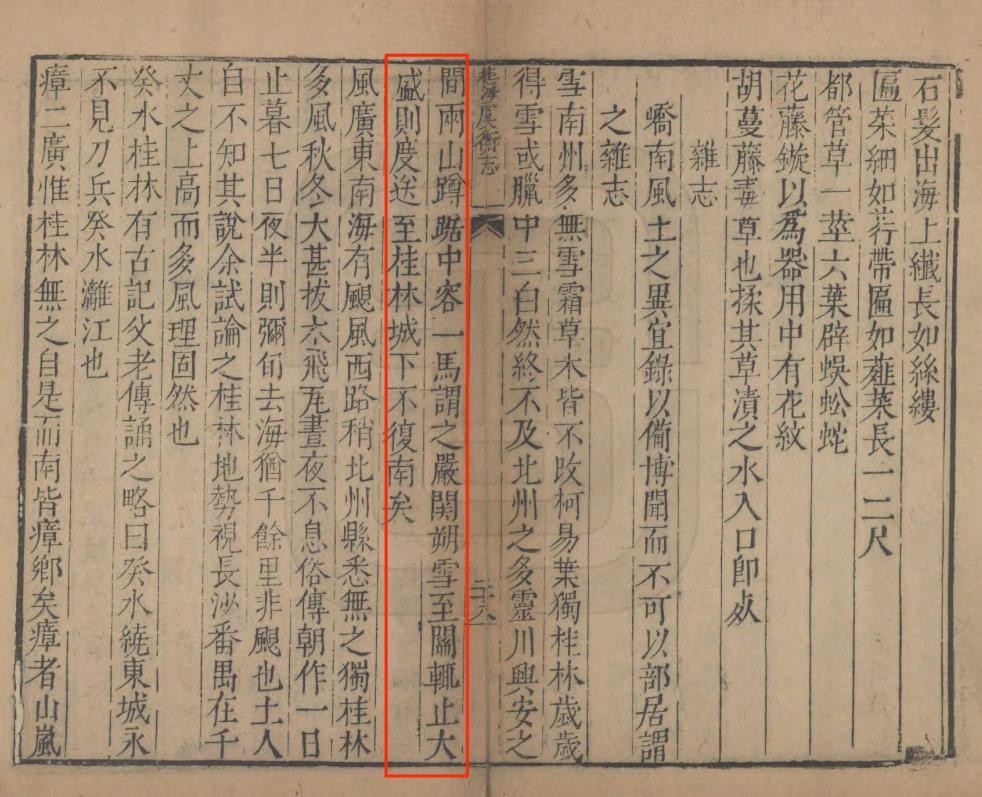 石髮出海上纖長如絲縷
匾菜細如荇帶匾如薤菜長一二尺
都管草一莖六葉辟蜈蚣蛇
花藤鏇以爲器用中有花紋
胡蔓藤毒草也揉其草漬之水入口即歿
雜志
嶠南風土之異宜錄以備博聞而不可以部居謂
之雜志
雪南州多無雪霜草木皆不改柯易葉獨桂林歲歲
得雪或臘中三白然終不及北州之多靈川興安之
桂海虞衡志
二十八
間兩山蹲踞中容一馬謂之嚴関朔雪至關輒止大
盛則度送至桂林城下不復南矣
風廣東南海有颶風西路稍北州縣悉無之獨桂林
多風秋冬大甚拔木飛瓦晝夜不息俗傳朝作一日
止暮七日夜半則彌旬去海猶千餘里非颶也土人
自不知其說余試論之桂林地勢視長沙番禺在千
丈之上高而多風理固然也
癸水桂林有古記父老傳誦之略曰癸水繞東城永
不見刀兵癸水灕江也
瘴二廣惟桂林無之自是而南皆瘴鄉矣瘴者山嵐